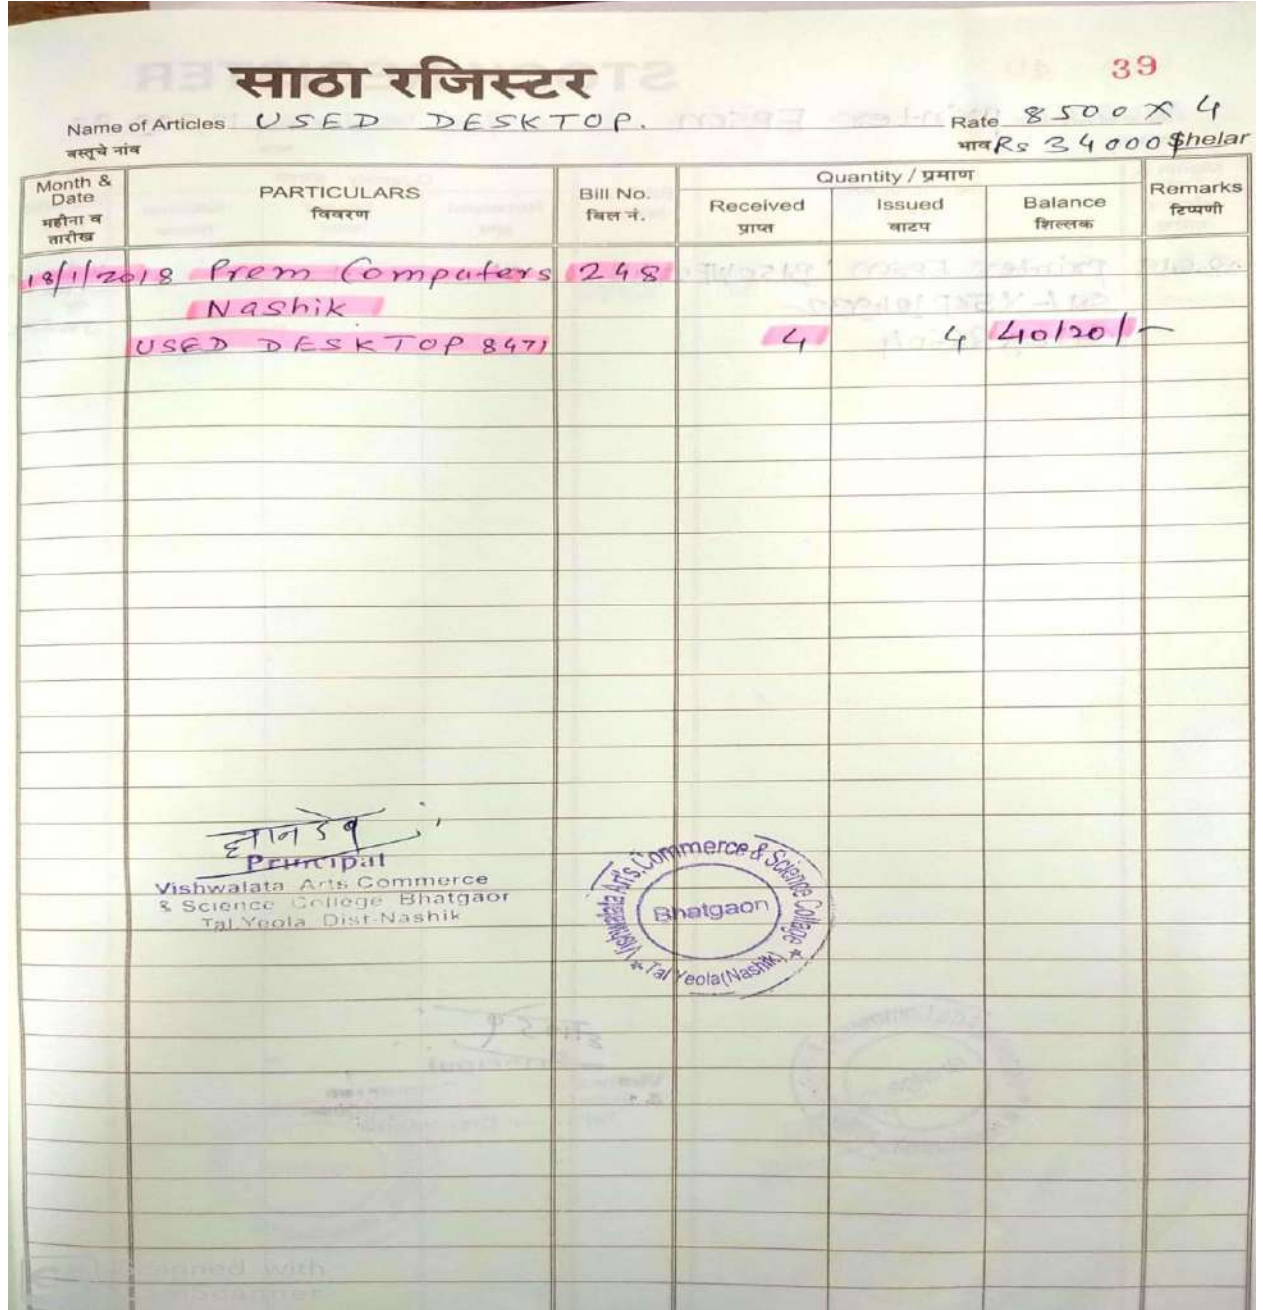 39
साठा रजिस्टर
Name of Articles USED DESKTOP. Rate 8500 X 4
वस्तूचे नांव भाव Rs 34000 Shelar
Month & Date महीना व तारीख PARTICULARS विवरण Bill No. बिल नं. Quantity / प्रमाण Remarks टिप्पणी
Received प्राप्त Issued वाटप Balance शिल्लक
18/1/2018 Prem Computers 248
Nashik
USED DESKTOP 8471 4 4 40/20/-
ज्ञानदेव
Principal
Vishwalata Arts Commerce
& Science College Bhatgaon
Tal.Yeola Dist-Nashik
Vishwalata Arts, Commerce & Science College
Bhatgaon
Tal Yeola(Nashik)